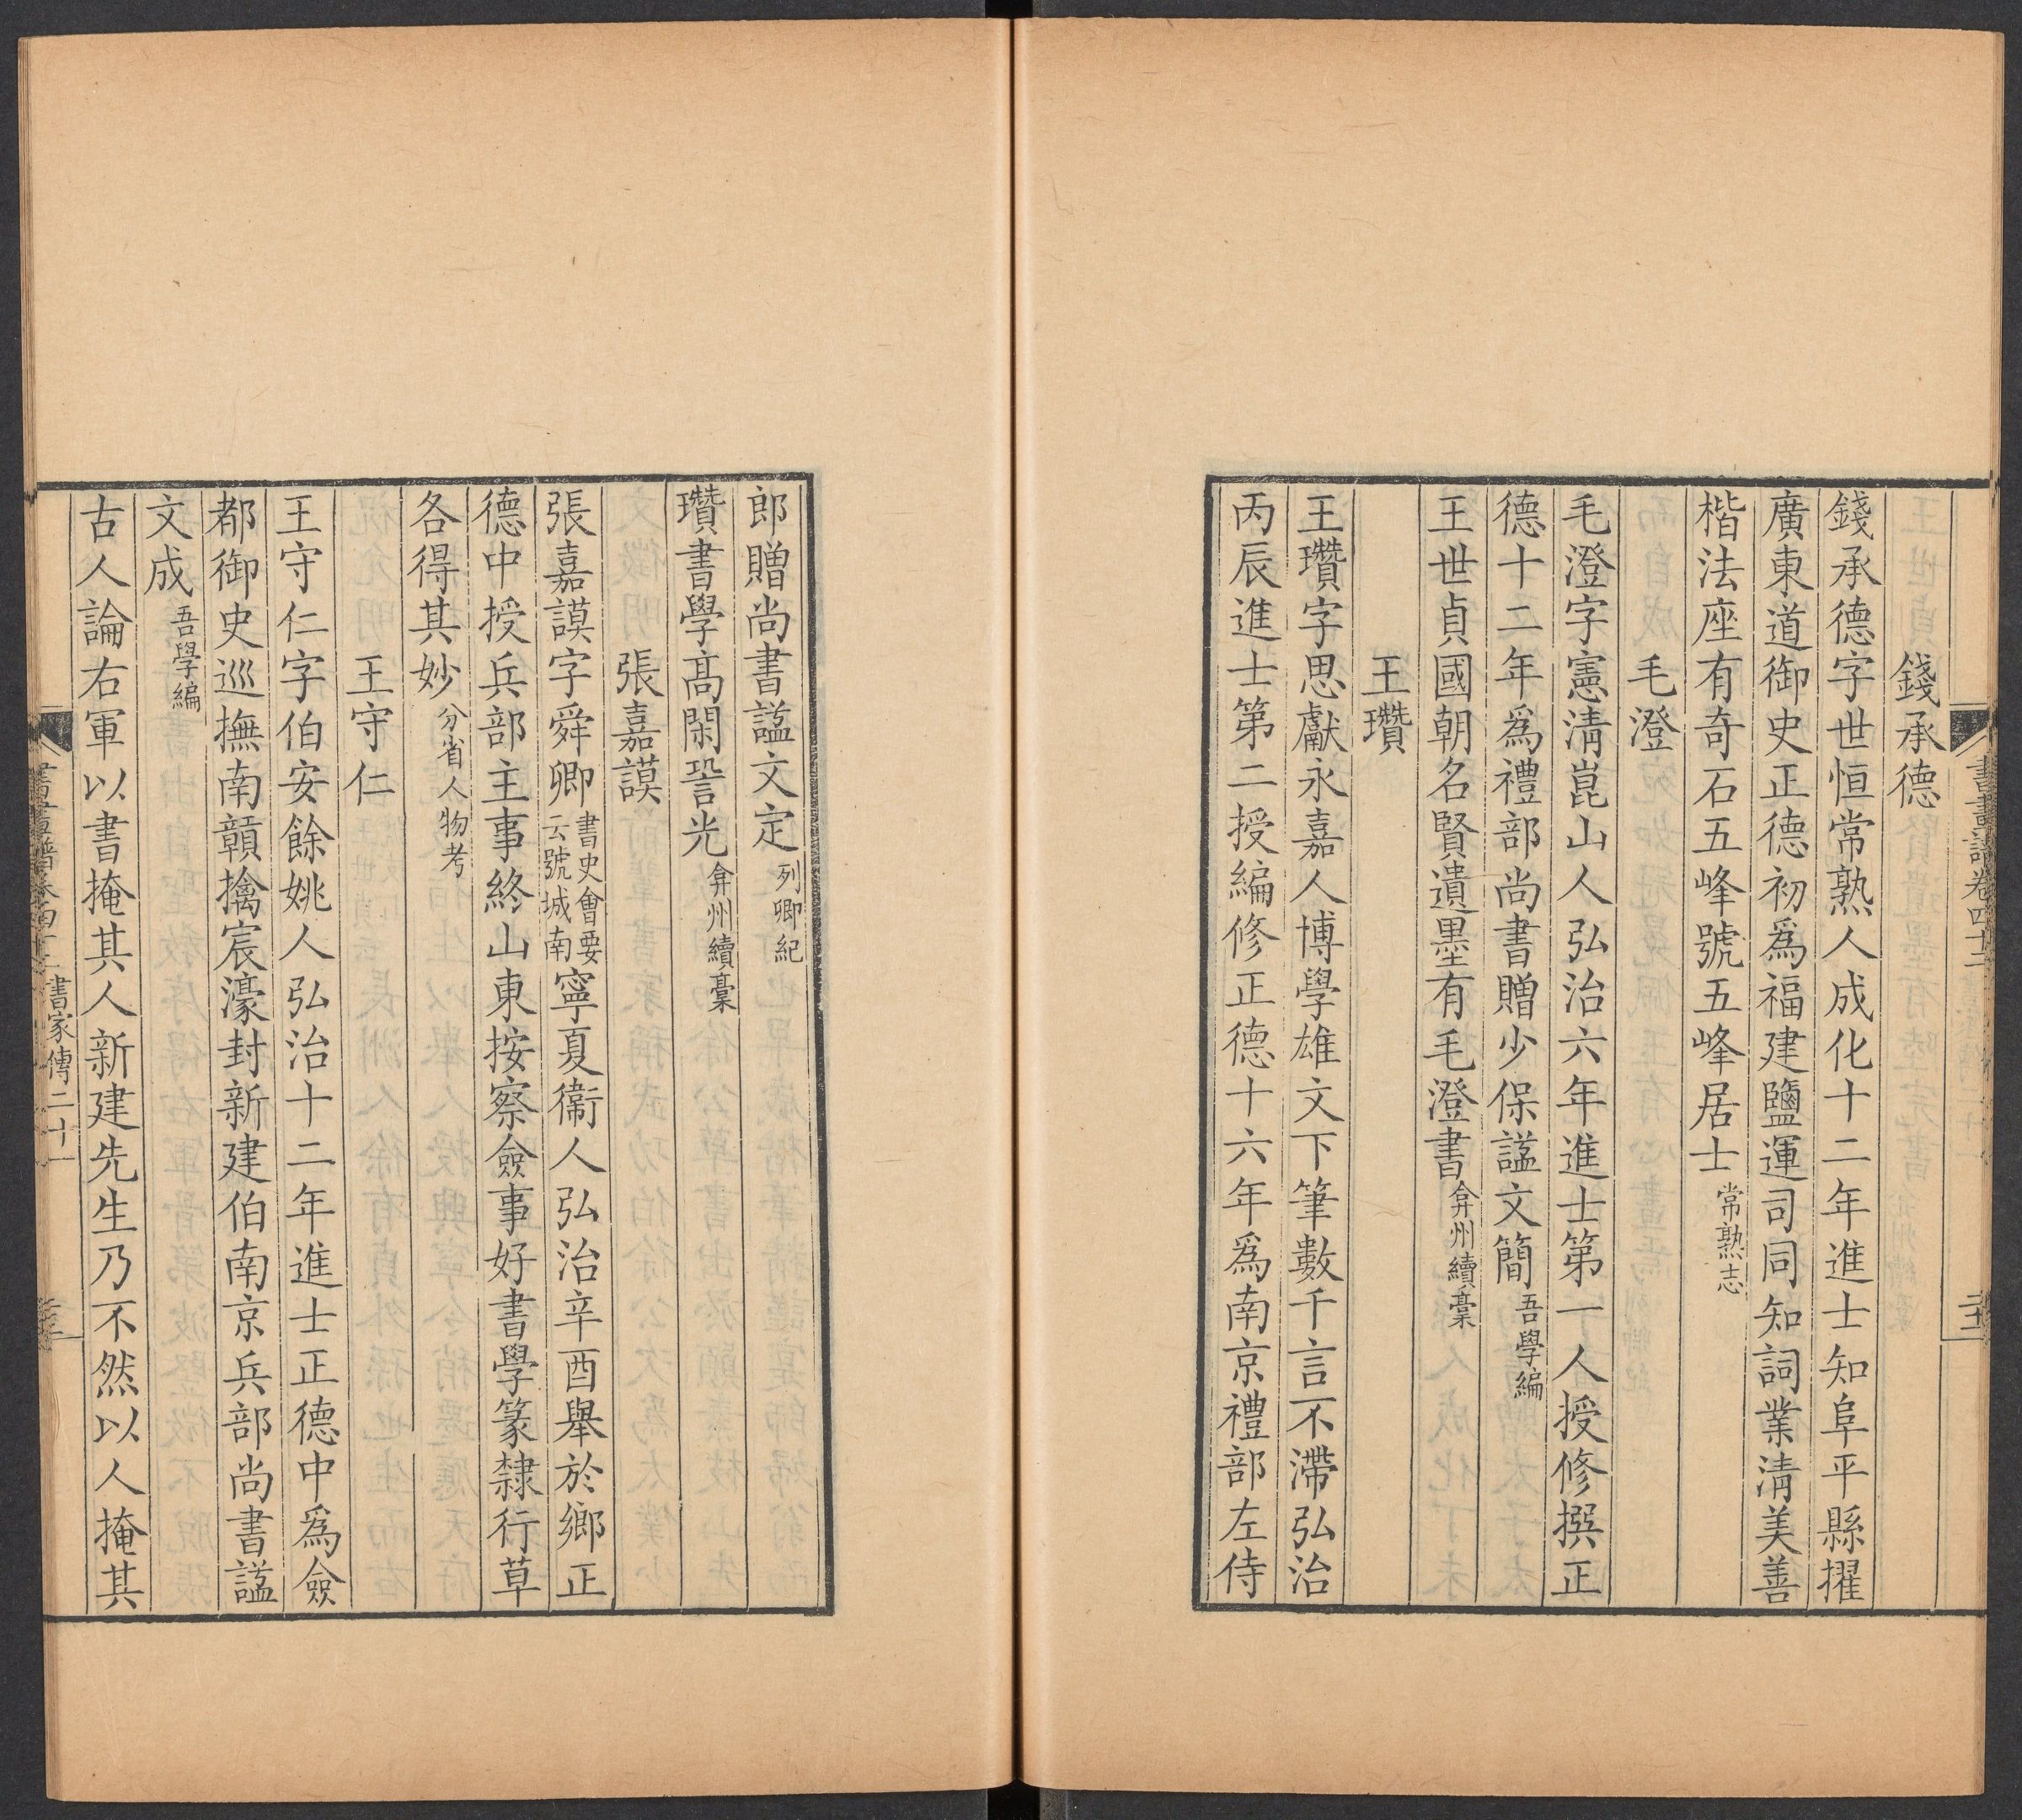 書畫譜卷四十二
錢承德
錢承德字世恒常熟人成化十二年進士知阜平縣擢
廣東道御史正德初爲福建鹽運司同知詞業淸美善
楷法座有奇石五峰號五峰居士常熟志
毛澄
毛澄字憲淸崑山人弘治六年進士第一人授修撰正
德十二年爲禮部尚書贈少保諡文簡吾學編
王世貞國朝名賢遺墨有毛澄書弇州續藁
王瓚
王瓚字思獻永嘉人博學雄文下筆數千言不滯弘治
丙辰進士第二授編修正德十六年爲南京禮部左侍
郎贈尚書諡文定列卿紀
瓚書學高閑䇓光弇州續藁
張嘉謨
張嘉謨字舜卿書史會要云號城南寧夏衞人弘治辛酉舉於鄉正
德中授兵部主事終山東按察僉事好書學篆隸行草
各得其妙分省人物考
王守仁
王守仁字伯安餘姚人弘治十二年進士正德中爲僉
都御史巡撫南贛擒宸濠封新建伯南京兵部尚書諡
文成吾學編
古人論右軍以書掩其人新建先生乃不然以人掩其
書畫譜卷四十二 書家傳二十一